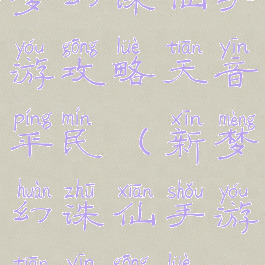 梦幻诛仙手
yóu gōng lüè tiān yīn
游攻略天音
píng mín xīn mèng
平民（新梦
huàn zhū xiān shǒu yóu
幻诛仙手游
tiān yīn gōng lüè